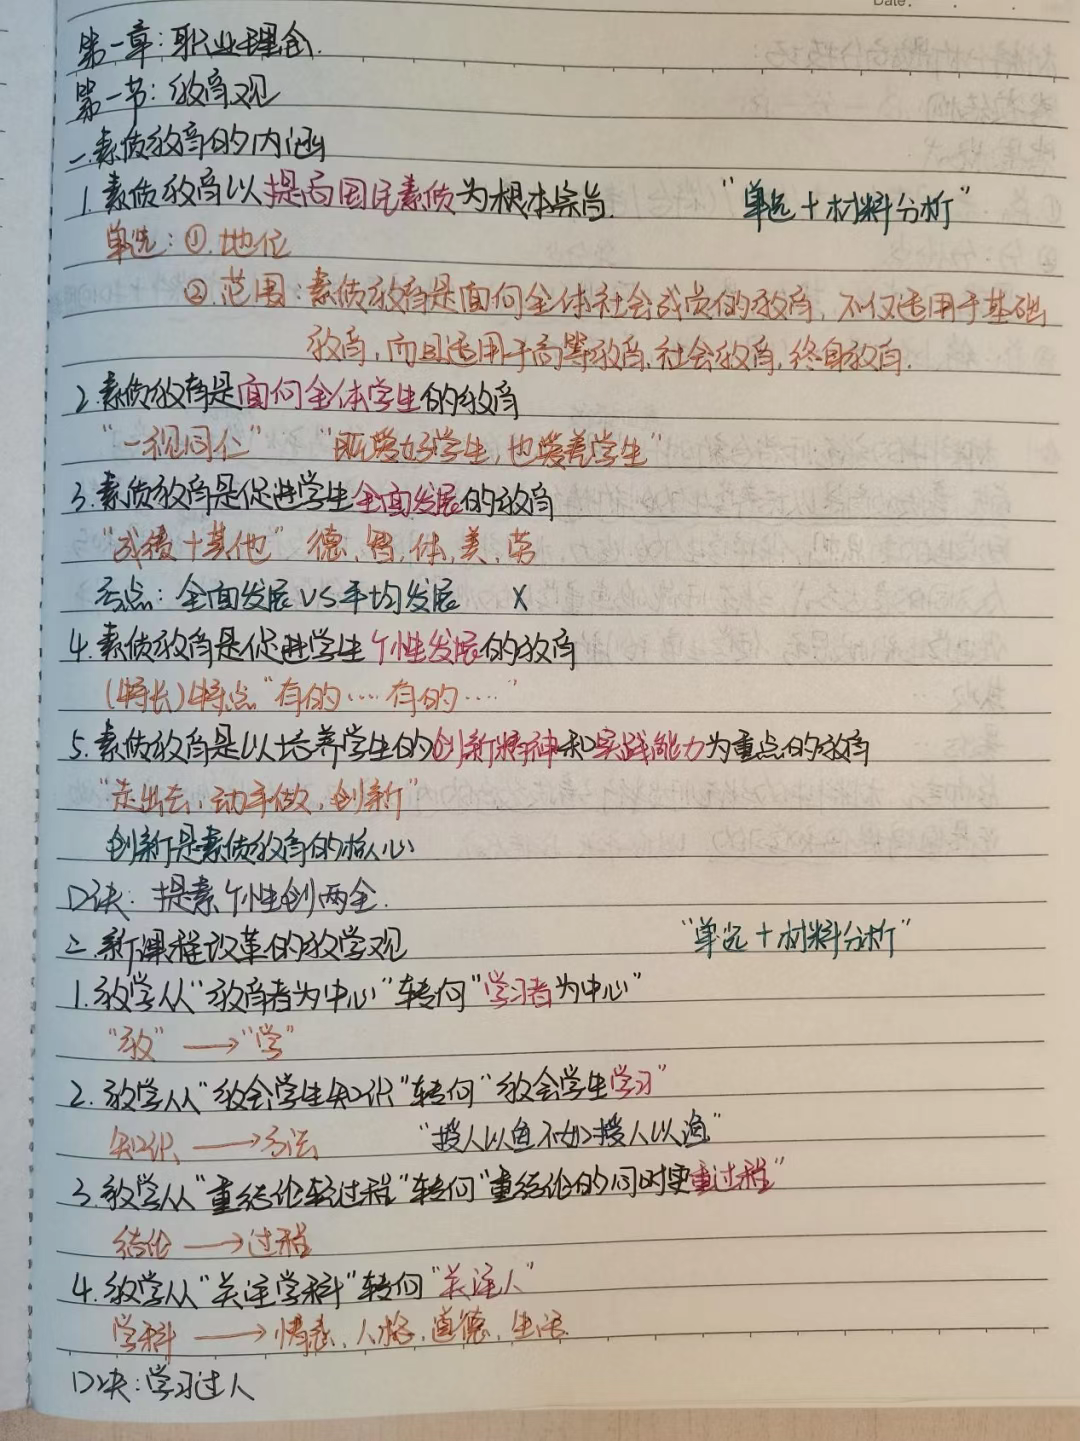 Date:
第一章:职业理念.
第一节:教育观
一.素质教育的内涵
1.素质教育以提高国民素质为根本宗旨. "单选+材料分析"
单选:①.地位
②.范围:素质教育是面向全体社会成员的教育,不仅适用于基础
教育,而且适用于高等教育.社会教育.终身教育.
2.素质教育是面向全体学生的教育
"一视同仁" "既爱好学生,也爱差学生"
3.素质教育是促进学生全面发展的教育
"成绩+其他" 德,智,体,美,劳
考点:全面发展VS平均发展 X
4.素质教育是促进学生个性发展的教育
(特长)特点"有的……有的……"
5.素质教育是以培养学生的创新精神和实践能力为重点的教育
"走出去,动手做,创新"
创新是素质教育的核心
口诀:提素个性创两全.
二.新课程改革的教学观 "单选+材料分析"
1.教学从"教育者为中心"转向"学习者为中心"
"教"→"学"
2.教学从"教会学生知识"转向"教会学生学习"
知识→方法 "授人以鱼不如授人以渔"
3.教学从"重结论轻过程"转向"重结论的同时更重过程"
结论→过程
4.教学从"关注学科"转向"关注人"
学科→情感、人格,道德,生活.
口诀:学习过人